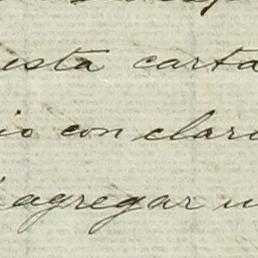 esta carta
io con clari
agregar u